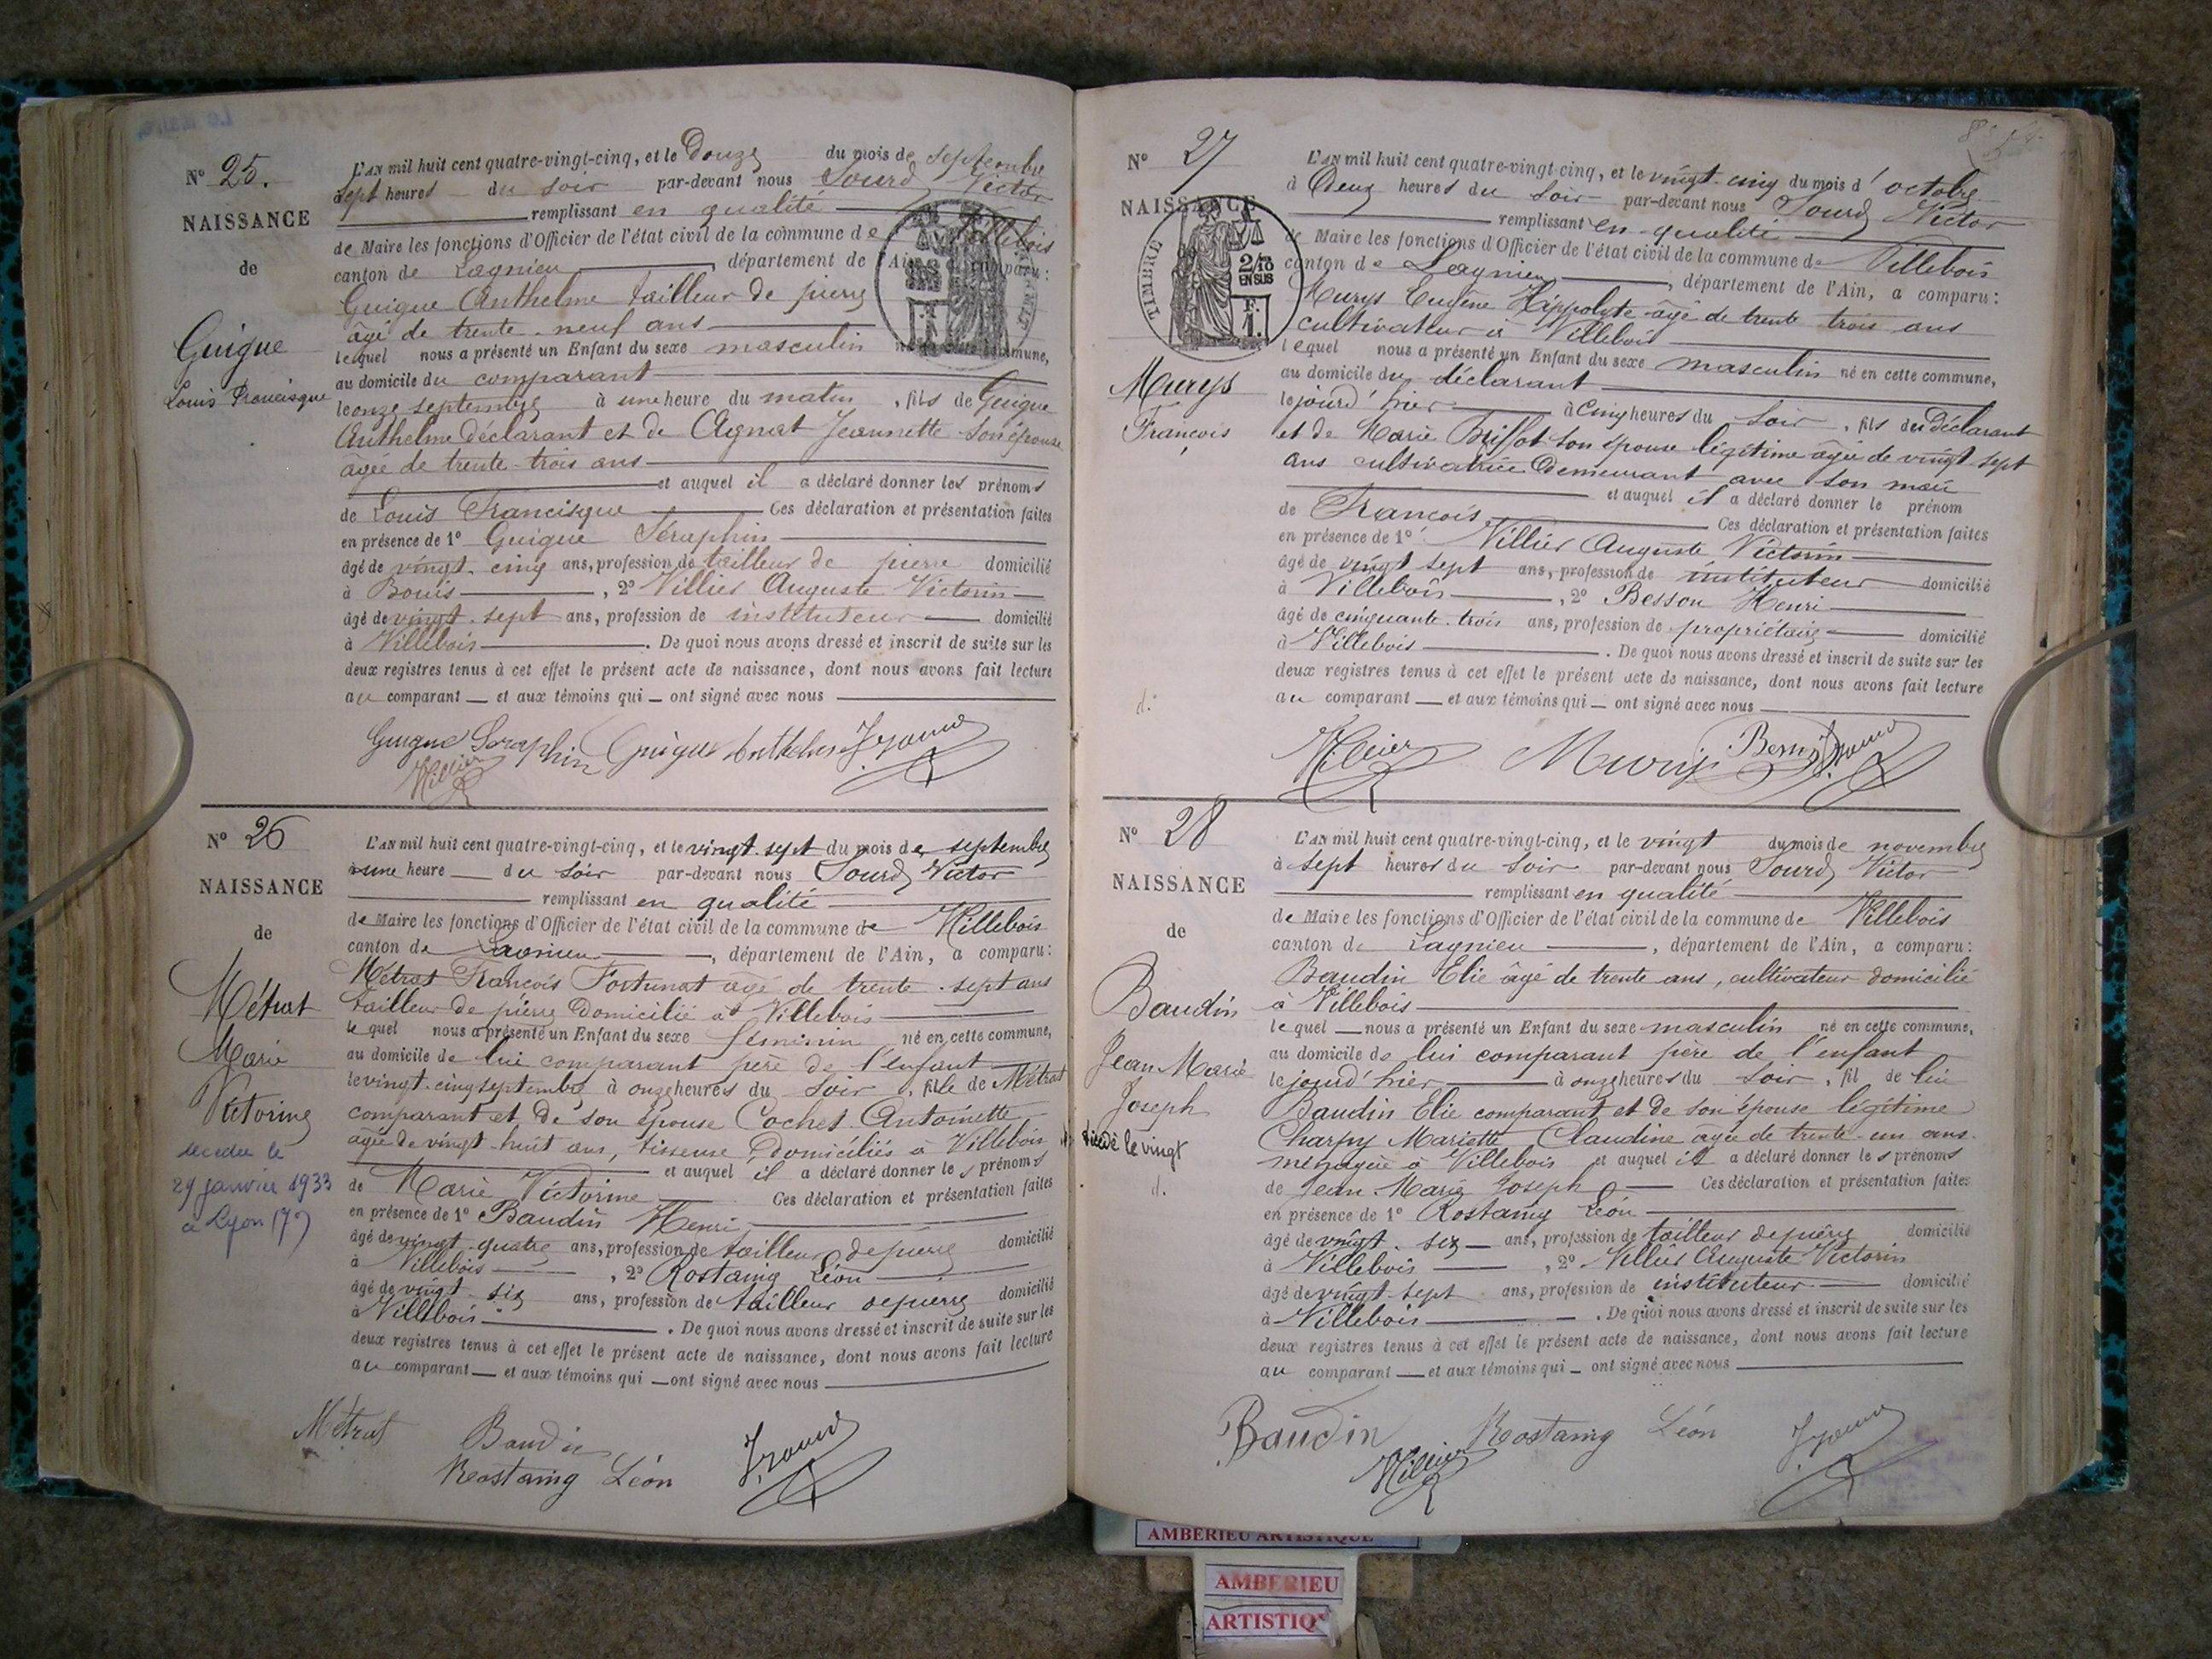 N° 25.
NAISSANCE
de
Guigue
Louis Francisque
L'AN mil huit cent quatre-vingt-cinq, et le Douze du mois de septembre
à sept heures du soir par-devant nous Sourd Victor
remplissant en qualité
de Maire les fonctions d'Officier de l'état civil de la commune de Villebois
canton de Lagnieu, département de l'Ain, a comparu:
Guigue Anthelme tailleur de pierre
âgé de trente-neuf ans
lequel nous a présenté un Enfant du sexe masculin né en cette commune,
au domicile du comparant
le onze septembre à une heure du matin, fils de Guigue
Anthelme déclarant et de Agnat Jeannette son épouse
âgée de trente-trois ans
et auquel il a déclaré donner les prénoms
de Louis Francisque Ces déclaration et présentation faites
en présence de 1° Guigue Séraphin
âgé de vingt-cinq ans, profession de tailleur de pierre domicilié
à Bouis, 2° Villier Auguste Victorin
âgé de vingt-sept ans, profession de instituteur domicilié
à Villebois. De quoi nous avons dressé et inscrit de suite sur les
deux registres tenus à cet effet le présent acte de naissance, dont nous avons fait lecture
au comparant et aux témoins qui ont signé avec nous
Guigue Seraphin Guigue Anthelme V. Sourd
Villier
N° 26
NAISSANCE
de
Métrat
Marie
Victorine
décédée le
29 janvier 1933
à Lyon (7e)
L'AN mil huit cent quatre-vingt-cinq, et le vingt-sept du mois de septembre
à une heure du soir par-devant nous Sourd Victor
remplissant en qualité
de Maire les fonctions d'Officier de l'état civil de la commune de Villebois
canton de Lagnieu, département de l'Ain, a comparu:
Métrat François Fortunat âgé de trente-sept ans
tailleur de pierre domicilié à Villebois
lequel nous a présenté un Enfant du sexe féminin né en cette commune,
au domicile de lui comparant père de l'enfant
le vingt-cinq septembre à onze heures du soir, fille de Métrat
comparant et de son épouse Cochet Antoinette
âgée de vingt-huit ans, tisseuse, domiciliés à Villebois
et auquel il a déclaré donner les prénoms
de Marie Victorine Ces déclaration et présentation faites
en présence de 1° Baudin Henri
âgé de vingt-quatre ans, profession de tailleur de pierre domicilié
à Villebois, 2° Rostaing Léon
âgé de vingt-six ans, profession de tailleur de pierre domicilié
à Villebois. De quoi nous avons dressé et inscrit de suite sur les
deux registres tenus à cet effet le présent acte de naissance, dont nous avons fait lecture
au comparant et aux témoins qui ont signé avec nous
Métrat Baudin V. Sourd
Rostaing Léon
N° 27
NAISSANCE
TIMBRE
2/10 EN SUS
F. 1.
Murys
François
L'AN mil huit cent quatre-vingt-cinq, et le vingt-cinq du mois d'octobre
à Deux heures du soir par-devant nous Sourd Victor
remplissant en qualité
de Maire les fonctions d'Officier de l'état civil de la commune de Villebois
canton de Lagnieu, département de l'Ain, a comparu:
Murys Eugène Hippolyte âgé de trente-trois ans
cultivateur à Villebois
lequel nous a présenté un Enfant du sexe masculin né en cette commune,
au domicile du déclarant
le jourd'hier à cinq heures du soir, fils du déclarant
et de Marie Brissot son épouse légitime âgée de vingt-sept
ans cultivatrice demeurant avec son mari
et auquel il a déclaré donner le prénom
de François Ces déclaration et présentation faites
en présence de 1° Villier Auguste Victorin
âgé de vingt-sept ans, profession de instituteur domicilié
à Villebois, 2° Besson Henri
âgé de cinquante-trois ans, profession de propriétaire domicilié
à Villebois. De quoi nous avons dressé et inscrit de suite sur les
deux registres tenus à cet effet le présent acte de naissance, dont nous avons fait lecture
au comparant et aux témoins qui ont signé avec nous
Villier Murys Besson V. Sourd
N° 28
NAISSANCE
de
Baudin
Jean Marie
Joseph
décédé le vingt
d.
L'AN mil huit cent quatre-vingt-cinq, et le vingt du mois de novembre
à sept heures du soir par-devant nous Sourd Victor
remplissant en qualité
de Maire les fonctions d'Officier de l'état civil de la commune de Villebois
canton de Lagnieu, département de l'Ain, a comparu:
Baudin Elie âgé de trente ans, cultivateur domicilié
à Villebois
lequel nous a présenté un Enfant du sexe masculin né en cette commune,
au domicile de lui comparant père de l'enfant
le jourd'hier à onze heures du soir, fil de lui
Baudin Elie comparant et de son épouse légitime
Charpy Mariette Claudine âgée de trente-un ans
ménagère à Villebois et auquel il a déclaré donner les prénoms
de Jean Marie Joseph Ces déclaration et présentation faites
en présence de 1° Rostaing Léon
âgé de vingt-six ans, profession de tailleur de pierre domicilié
à Villebois, 2° Villier Auguste Victorin
âgé de vingt-sept ans, profession de instituteur domicilié
à Villebois. De quoi nous avons dressé et inscrit de suite sur les
deux registres tenus à cet effet le présent acte de naissance, dont nous avons fait lecture
au comparant et aux témoins qui ont signé avec nous
Baudin Rostaing Léon V. Sourd
Villier
AMBERIEU ARTISTIQUE
AMBERIEU
ARTISTIQ